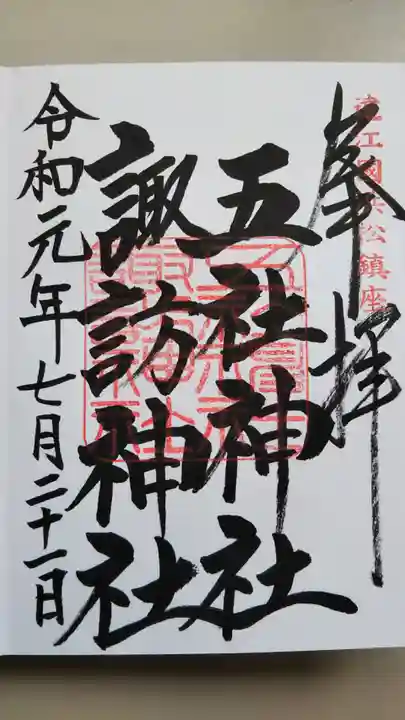 奉拝
遠江國浜松鎮座
五社神社
諏訪神社
令和元年七月二十一日